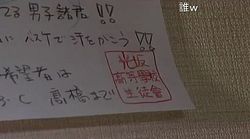 誰w
てる男子諸君!!
にバスケで汗をかこう!!
希望者は
C 高橋まで
光坂
高等学校
生徒會